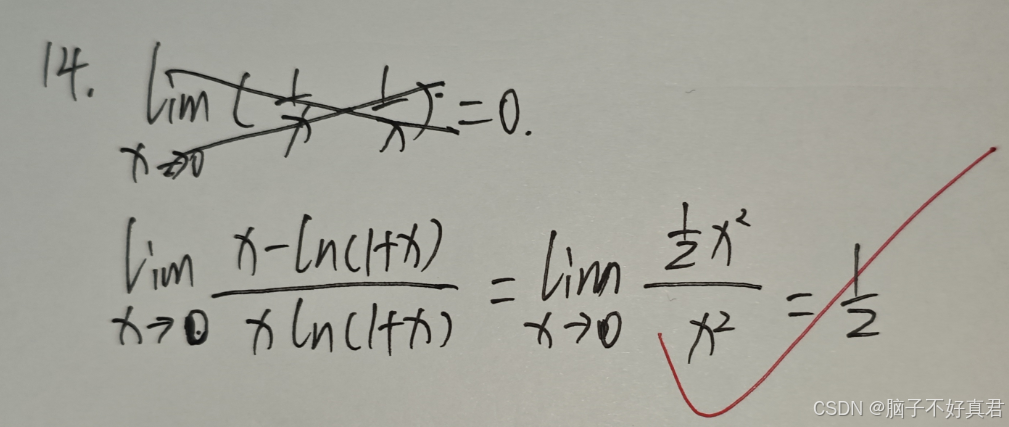 14. lim x→0 (1/x 1/x) = 0.
lim x→0 (x-ln(1+x))/(x ln(1+x)) = lim x→0 (1/2 x²)/x² = 1/2
CSDN @脑子不好真君